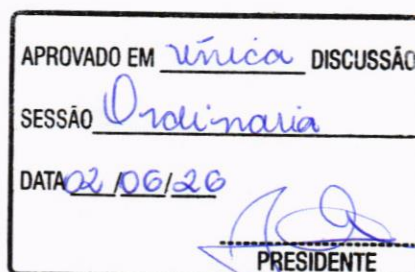 APROVADO EM única DISCUSSÃO
SESSÃO Ordinaria
DATA 02/06/26
PRESIDENTE